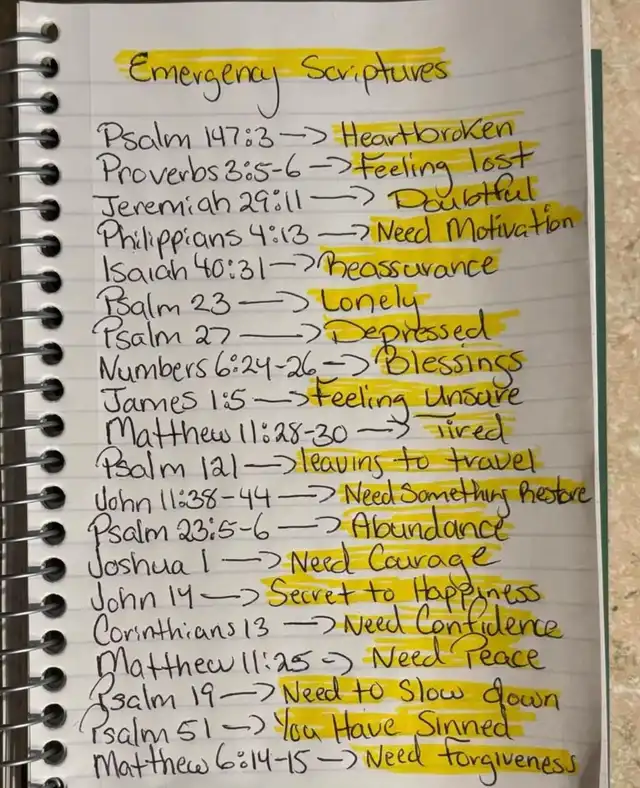 Emergency Scriptures
Psalm 147:3 → Heartbroken
Proverbs 3:5-6 → Feeling lost
Jeremiah 29:11 → Doubtful
Philippians 4:13 → Need Motivation
Isaiah 40:31 → Reassurance
Psalm 23 → Lonely
Psalm 27 → Depressed
Numbers 6:24-26 → Blessings
James 1:5 → Feeling Unsure
Matthew 11:28-30 → Tired
Psalm 121 → leaving to travel
John 11:38-44 → Need Something Restore
Psalm 23:5-6 → Abundance
Joshua 1 → Need Courage
John 14 → Secret to Happiness
Corinthians 13 → Need Confidence
Matthew 11:25 → Need Peace
Psalm 19 → Need to Slow down
Psalm 51 → You Have Sinned
Matthew 6:14-15 → Need forgiveness